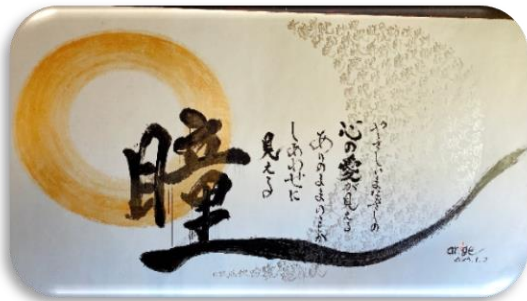 やさしいまなざしの
心の愛が見える
ありのままの
しあわせに
見える
瞳
arige